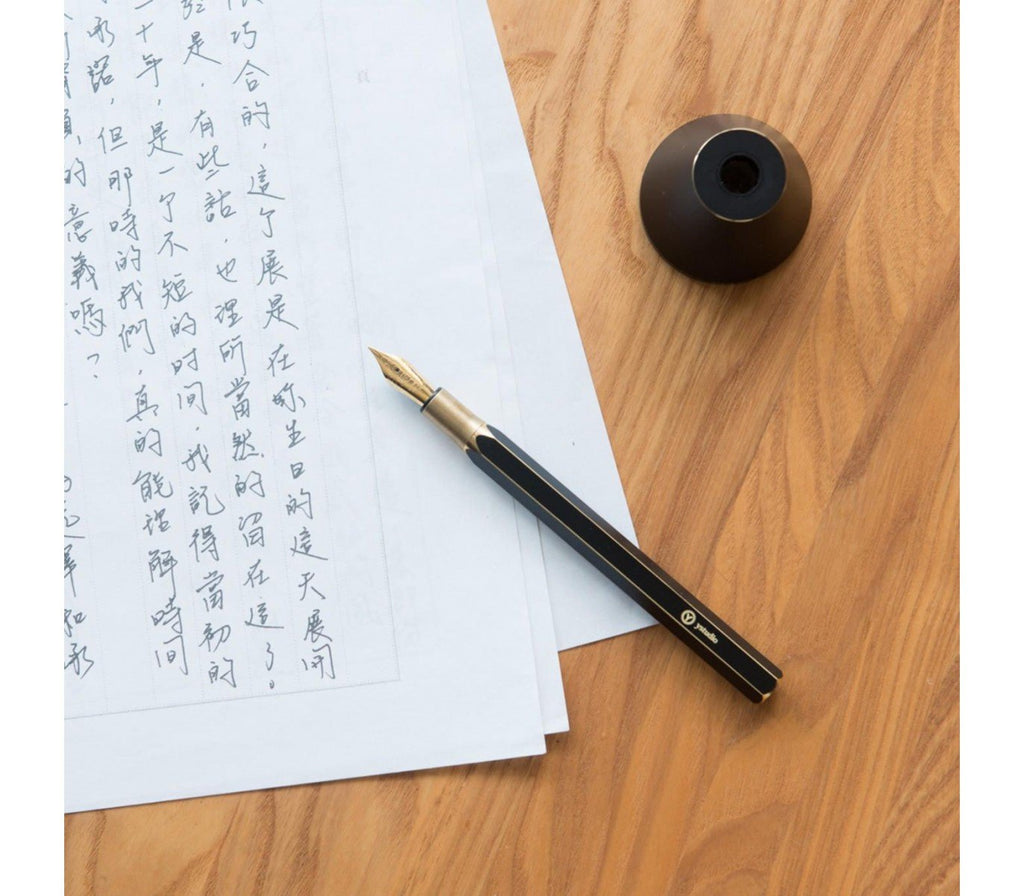 巧合的，這个展是在你生日的這天展開
是，有些話，也理所當然的留在這了。
二十年，是一个不短的时间，我記得當初的
承諾，但那時的我們，真的能理解時間
的意義嗎？
和承
ystudio